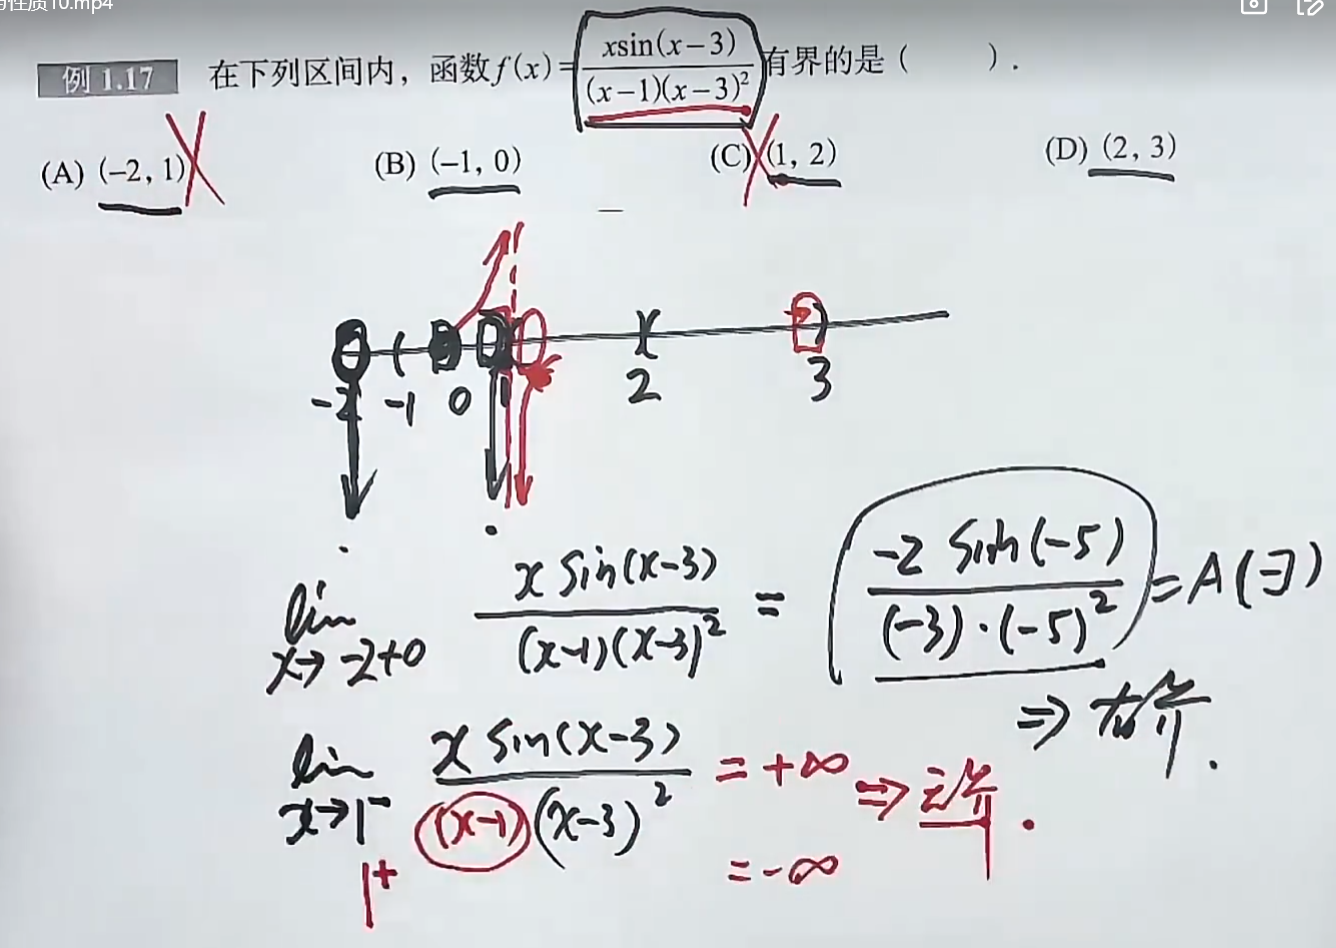 性质10.mp4
例 1.17 在下列区间内，函数f(x)=\frac{xsin(x-3)}{(x-1)(x-3)^2}有界的是（ ）.
(A) (-2, 1) (B) (-1, 0) (C) (1, 2) (D) (2, 3)
-2 -1 0 1 2 3
lim_{x→-2+0} \frac{x sin(x-3)}{(x-1)(x-3)^2} = \frac{-2 sin(-5)}{(-3)·(-5)^2} = A(∃)
⇒ 有界.
lim_{x→1^-} \frac{x sin(x-3)}{(x-1)(x-3)^2} = +∞ ⇒ 无界.
1^+ = -∞